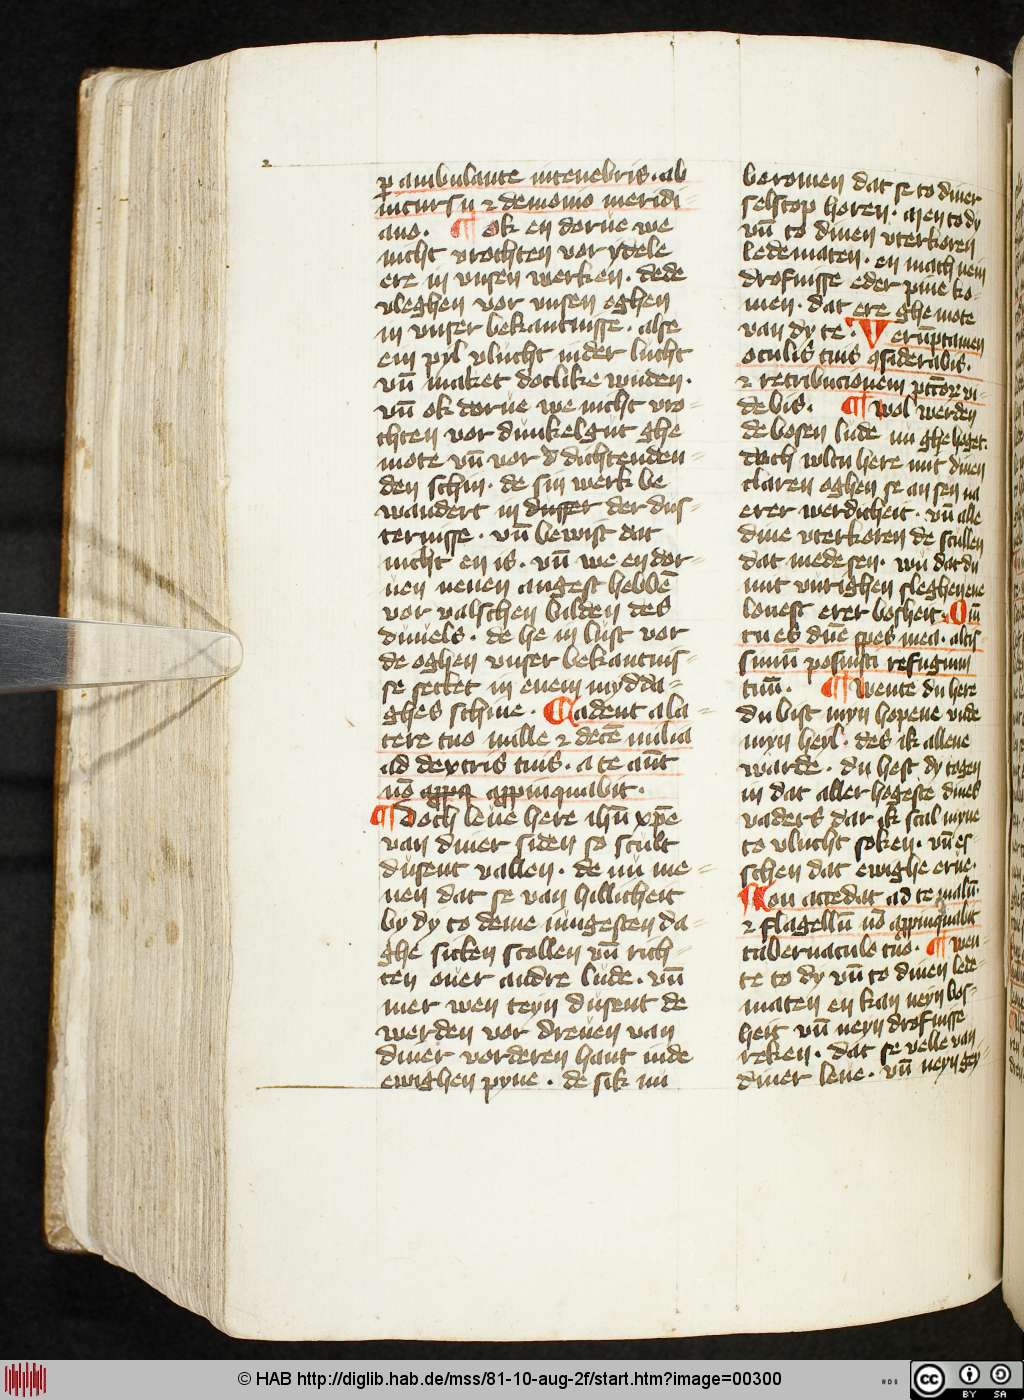 p ambulante in tenebris. ab
incursu ⁊ demonio meridi
ano. ¶ ok en dorue we
nicht vrochten vor ydele
ere in vnsen werken. de de
vleghen vor vnsen oghen
in vnser bekantnisse. alse
ein pyl vlucht in der lucht
vn̄ maket dotlike wnden.
vn̄ ok dorue we nicht vro-
chten vor dunkelgut ghe
mote vn̄ vor d̄ dichtenden
den schin. de sin werk be
wandert in dusser der dus-
ternisse. vn̄ bewist dat
nicht en is. vn̄ we en dor-
uen nenen angest hebbē
vor valschen bilden des
duuels. de he in lust vor
de oghen vnser bekantnis-
se settet in enem mydda-
ghes schine. Cadent a la-
tere tuo mille ⁊ decē milia
ad dextris tuis. a te aūt
nō appinquabit.
¶ Doch leue here ihū xpē
van diner siden so scult
dusent vallen. de nu me-
nen dat se van hillicheit
by dy to deme iungesten da-
ghe sitten scollen vn̄ rich-
ten ouer andre lude. vn̄
mer wen teyn dusent de
werden vor dreuen van
diner vorderen hant inde
ewighen pyne. de sik nu
beromen dat se to diner
selscop horen. Men to dy
vn̄ to dinen vterkoren
ledematen. en mach nein
drofnisse eder pine ko-
men. dat ere ghemote
van dy te. Verūptamen
oculis tuis ꝯsiderabis.
⁊ retribucionem pctōr vi-
debis. ¶ Wol werden
de bosen lude nu ghe hoget.
doch wltu here mit dinen
claren oghen se an sen na
erer werdicheit. vn̄ alle
dine vterkoren de scullen
dat mede sen. wn dat du
mit vurighen sleghen ene
lonest erer bosheit. Qm̄
tu es dn̄e spes mea. altis-
simū posuisti refugium
tuū. ¶ Wente du here
du bist myn hopene vnde
myn heyl. des ik allene
warde. du hest dy togen
in dat aller hogeste dines
vaders dar ik scal myne
to vlucht soken. vn̄ es
schen dat ewighe erue.
Non accedat ad te malū.
⁊ flagellū nō appinquabit
tabernaculo tuo. ¶ Wen-
te to dy vn̄ to dinen lede-
maten en kan neyn bos-
heit vn̄ neyn drofnisse
reken. dat se velle van
diner leue. vn̄ neyn gey-
© HAB http://diglib.hab.de/mss/81-10-aug-2f/start.htm?image=00300
HAB
cc BY SA